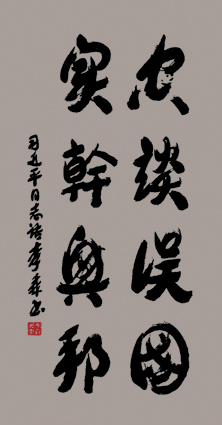 空談誤國
實幹興邦
习近平同志語李森書